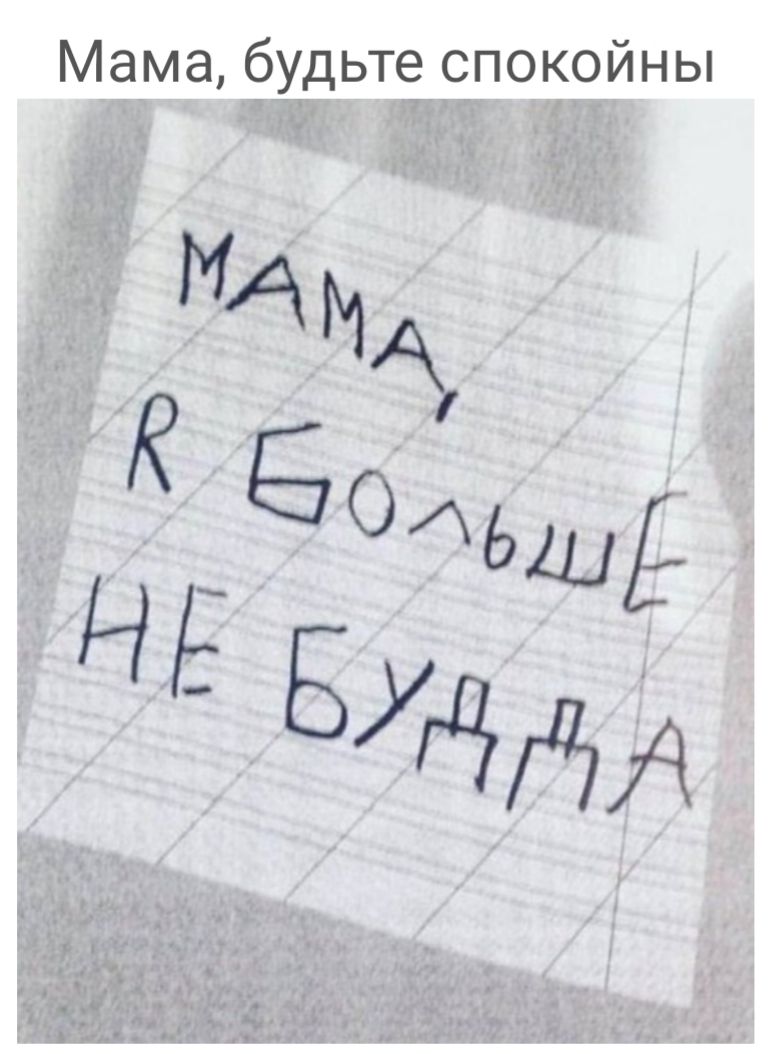 Мама, будьте спокойны
МАМА,
Я БОЛЬШЕ
НЕ БУДДА